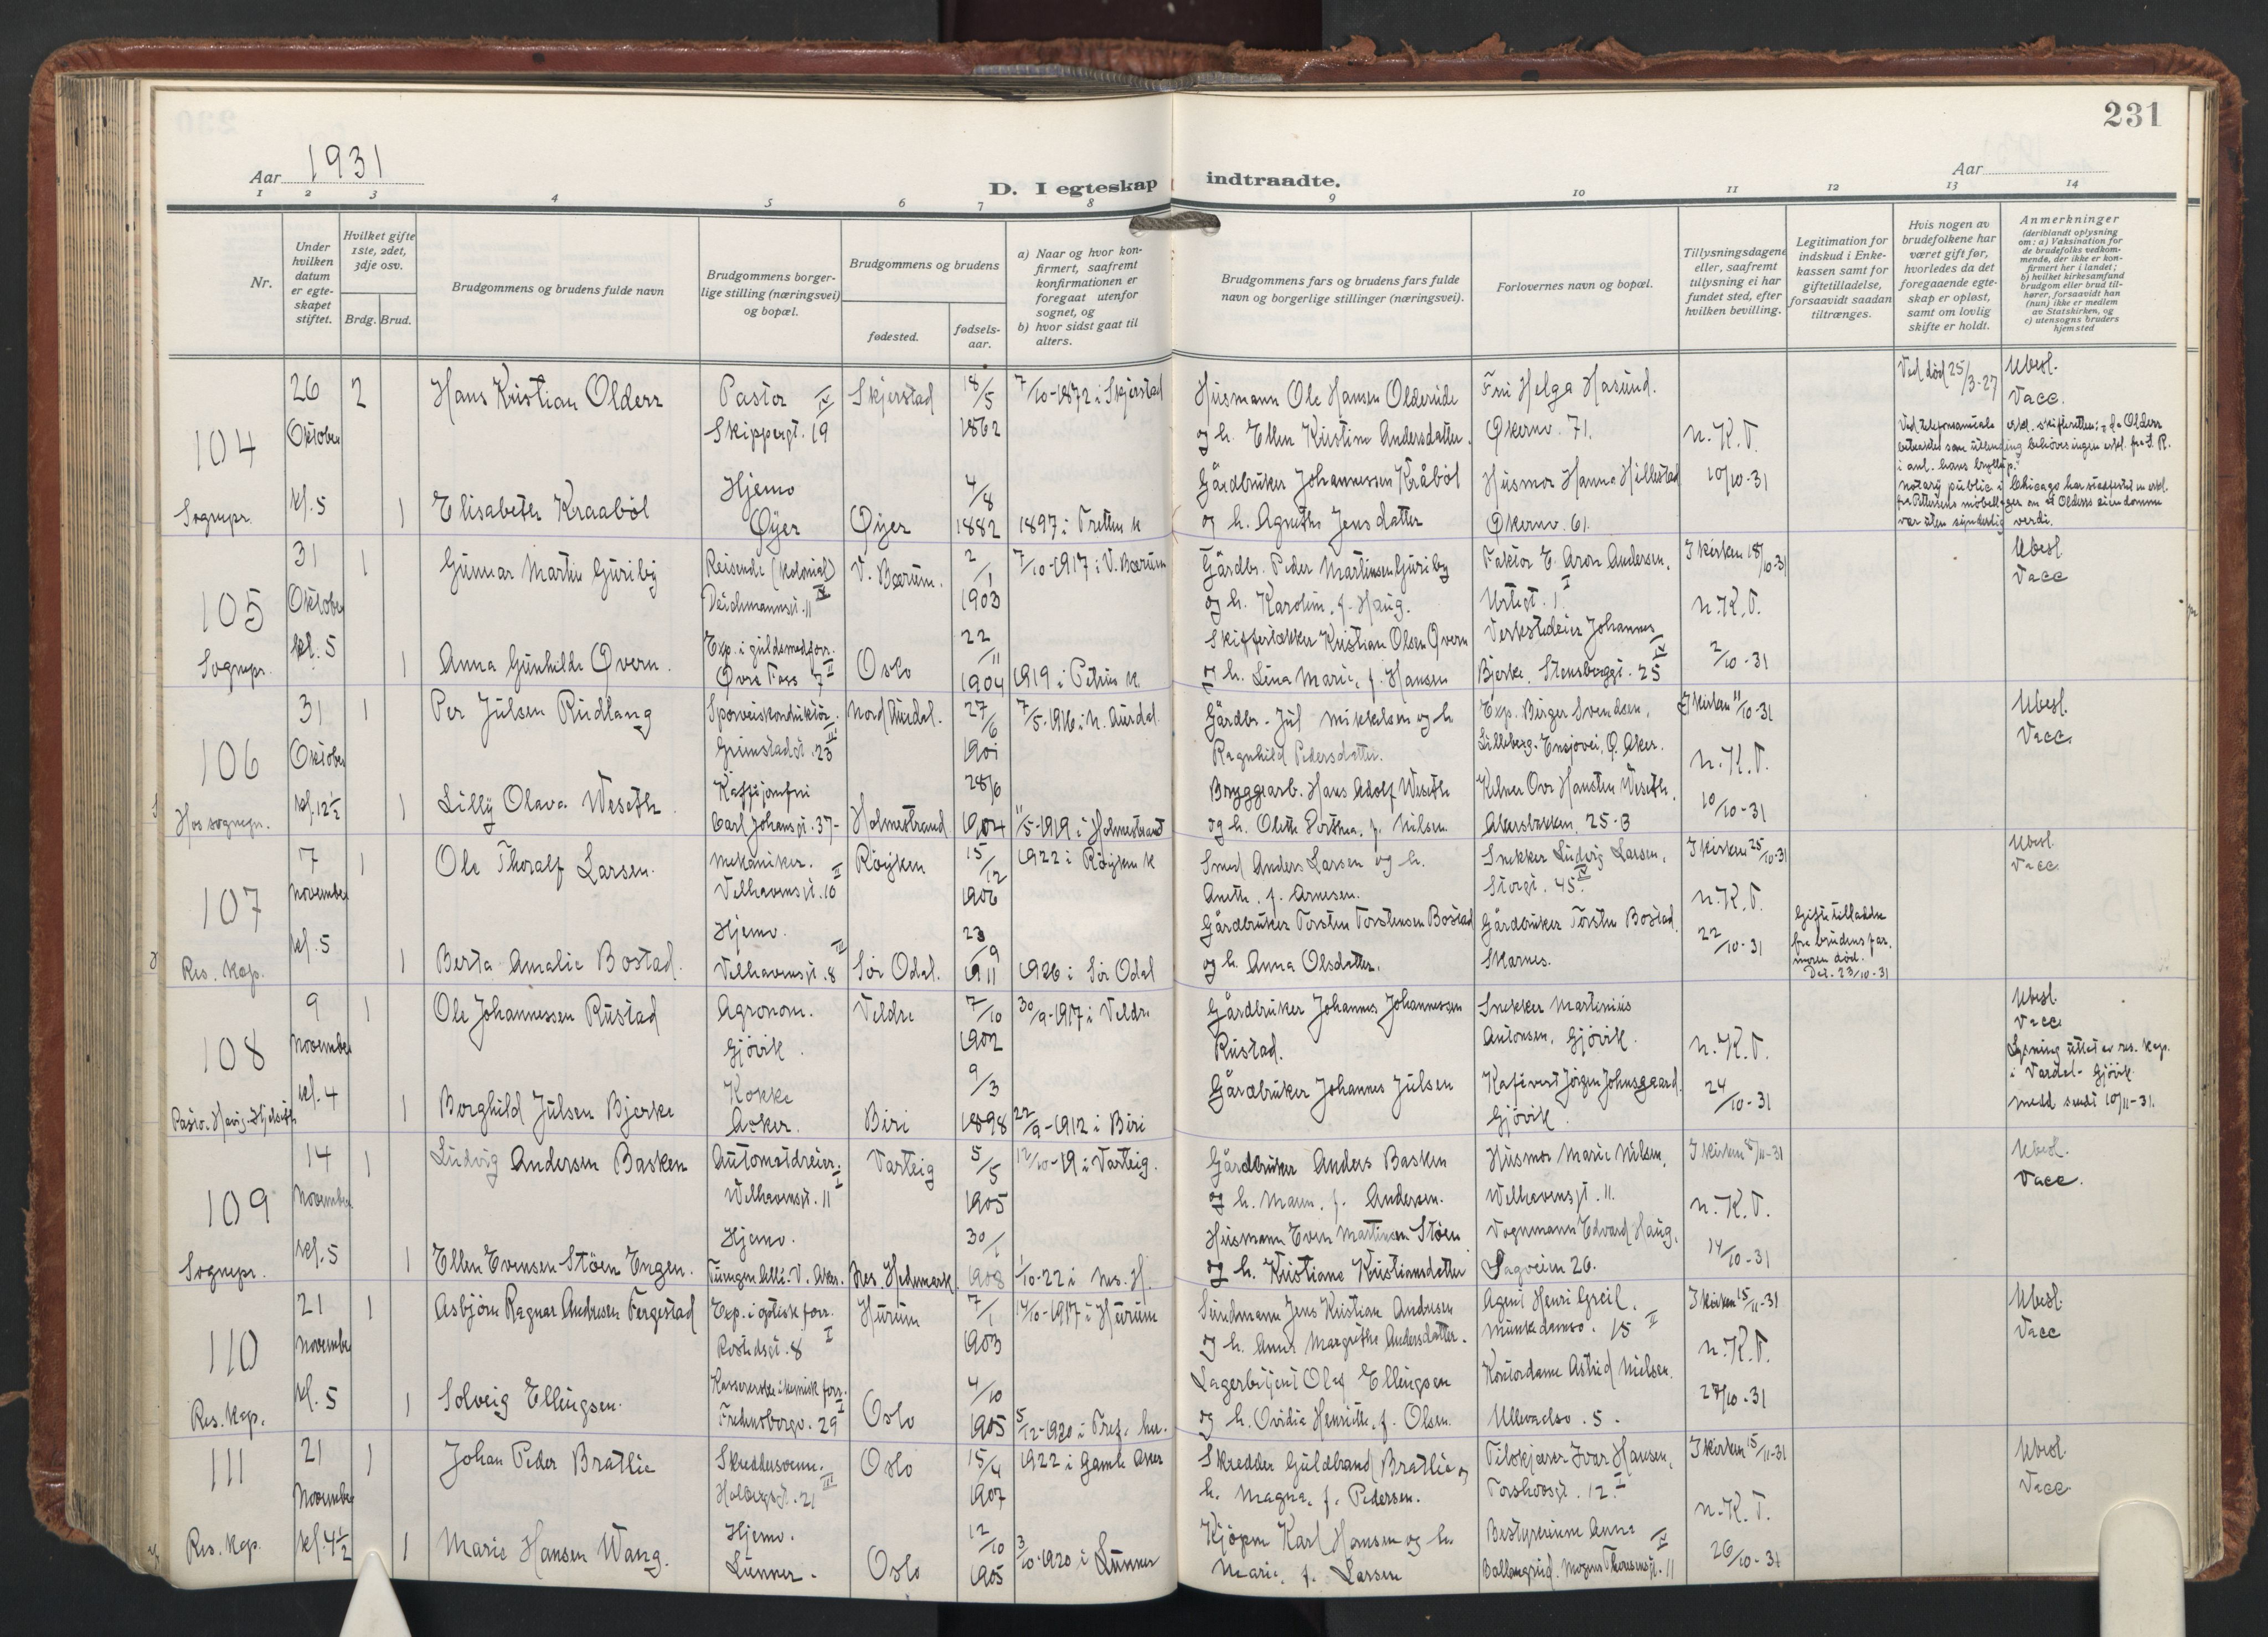 231
Aar 1931
D. I egteskap indtraadte.
Aar
1 2 3 4 5 6 7 8 9 10 11 12 13 14
Nr.
Under hvilken datum er egte-skapet stiftet.
Hvilket gifte 1ste, 2det, 3dje osv.
Brdg. Brud.
Brudgommens og brudens fulde navn
Brudgommens borger-lige stilling (næringsvei) og bopæl.
Brudgommens og brudens
fødested.
fødsels-aar.
a) Naar og hvor kon-firmert, saafremt konfirmationen er foregaat utenfor sognet, og
b) hvor sidst gaat til alters.
Brudgommens fars og brudens fars fulde navn og borgerlige stillinger (næringsvei).
Forlovernes navn og bopæl.
Tillysningsdagene eller, saafremt tillysning ei har fundet sted, efter hvilken bevilling.
Legitimation for indskud i Enke-kassen samt for giftetilladelse, forsaavidt saadan tiltrænges.
Hvis nogen av brudefolkene har været gift før, hvorledes da det foregaaende egte-skap er opløst, samt om lovlig skifte er holdt.
Anmerkninger (deriblandt oplysning om: a) Vaksination for de brudefolks vedkom-mende, der ikke er kon-firmert her i landet; b) hvilket kirkesamfund brudgom eller brud til-hører, forsaavidt han (hun) ikke er medlem av Statskirken, og c) utensogns bruders hjemsted
104 Sognepr.
26 Oktober kl. 5
2 Hans Kristian Olderr
Pastor Skippergt. 19 IV
Skjerstad 18/5 1862
7/10-1872 i Skjerstad
Husmann Ole Hansen Oldereide og h. Ellen Kristine Andersdatter.
Fru Helga Hasund. Økernv. 71.
n. K. T. 10/10-31
Ved død 25/3-27
Ubesl. Vacc.
1 Elisabeth Kraaböl
Hjemv Øyer
Øyer 4/8 1882
1897 i Tretten k
Gårdbruker Johannessen Kråböl og h. Agnethe Jensdatter
Husmor Hanna Hillestad Økernv. 61.
notary public i Chicago har
105 Sognepr.
31 Oktober kl. 5
1 Gunnar Martin Guriby
Reisende (kolonial) Deichmannsgt. 11 IV
V. Bærum. 2/1 1903
7/10-1917 i V. Bærum
Gårdbr. Peder Martinsen Guriby og h. Karoline, f. Haug.
Faktor E. Aron Andersen. Urtegt. 1 I
I kirken 18/10-31 n. K. T. 2/10-31
Ubesl Vacc
1 Anna Gunhilde Qvern.
Exp. i guldsmedforr. Øvre Foss 7 II
Oslo 22/11 1904
1919 i Petrus k.
Skiffertekker Kristian Olsen Qvern og h. Lina Marie, f. Hansen
Verkstedeier Johannes Bjerke. Stensberggt. 25 IV
106 Hos sognepr.
31 Oktober kl. 12½
1 Per Julsen Rudlang
Sporveiskonduktör. Grimstadgt. 23 III
Nord Aurdal. 27/6 1901
7/5-1916 i N. Aurdal
Gårdbr. Jul Mikkelsen og h. Ragnhild Pedersdatter.
Exp. Birger Svendsen. Lilleberg. Ensjovei, Ø. Aker.
I kirken 11/10-31 n. K. T. 10/10-31
Ubesl. Vacc.
1 Lilly Olava Weseth
Kaffijomfru Carl Johansgt. 37-
Holmestrand 28/6 1904
11/5-1919 i Holmestrand
Bryggearb. Hans Adolf Weseth og h. Olette Dorthea, f. Nilsen
Kelner Ove Hansten Weseth. Akersbakken. 25-B
107 Res. Kap.
7 November kl. 5
1 Ole Thoralf Larsen.
Mekaniker. Velhavensgt. 10 II
Röyken 15/12 1906
1922 i Röyken k
Smed Anders Larsen og h. Anette. f. Arnesen.
Snekker Ludvig Larsen. Storgt. 45 IV
I kirken 25/10-31 n. K. T. 22/10-31
Ubesl. Vacc.
1 Berta Amalie Bostad.
Hjemv. Velhavensgt. 8 III
Sör Odal. 23/9 1911
1926 i Sör Odal
Gårdbruker Torsten Torstensen Bostad og h. Anna Olsdatter.
Gårdbruker Torsten Bostad. Skarnes.
Giftetilladelse fra brudens far. moren död. Dat. 23/10-31
108
9 November kl. 4
1 Ole Johannessen Rustad
Agronom. Gjövik.
Veldre 7/10 1902
30/9-1917 i Veldre
Gårdbruker Johannes Johannessen Rustad.
Snekker Martinius Antonsen, Gjövik.
n. K. T. 24/10-31
Ubesl. Vacc
Lysning uttat av res. kap. i Vardal-Gjövik medd sendt 10/11-31.
1 Borghild Julsen Bjerke
Kokke Asker.
Biri 9/3 1898
22/9-1912 i Biri
Gårdbruker Johannes Julsen
Kafévert Jörgen Johnsgaard. Gjövik.
109 Sognepr.
14 November kl. 5
1 Ludvig Andersen Basken
Automatdreier. Welhavensgt. 11 I
Varteig 5/5 1905
12/10-19 i Varteig.
Gårdbruker Anders Basken og h. Maren. f. Andersen.
Husmor Marie Nilsen, Welhavensgt. 11.
I kirken 8/11-31 n. K. T. 14/10-31
Ubesl. Vacc.
1 Ellen Evensen Stöen Engen.
Hjemv. Tuengen Allé. V. Aker.
Nes. Hedemark 30/1 1908
1/10-22 i Nes. H.
Husmann Even Martinsen Stöen og h. Kristiane Kristiansdatter
Vognmann Edvard Haug, Sagveien 26.
110 Res. Kap.
21 November kl. 5
1 Asbjörn Ragnar Andresen Fergestad
Exp. i optisk forr. Rostedsgt. 8 I
Hurum 7/1 1903
14/10-1917 i Hurum
Sundmann Jens Kristian Andresen og h. Anna Margrethe Andersdatter.
Agent Henri Greil. Munkedamsv. 15 II
I kirken 15/11-31 n. K. T. 27/10-31
Ubesl. Vacc
1 Solveig Ellingsen.
Kassererske i kemisk forr. Fredensborgv. 29 I
Oslo 4/10 1905
5/12-1920 i Tref. her.
Lagerbetjent Olaf Ellingsen og h. Ovidia Henriette, f. Olsen.
Kontordame Astrid Nielsen. Ullevaalsv. 5.
111 Res. Kap.
21 November kl. 4½
1 Johan Peder Bratlie
Skreddersvenn. Holbergsgt. 21 III
Oslo 15/4 1907
1922 i Gamle Aker
Skredder Guldbrand Bratlie og h. Magna, f. Pedersen.
Tilskjærer Ivar Hansen, Torshovsgt. 12 I
I kirken 15/11-31 n. K. T. 26/10-31
Ubesl. Vacc
1 Marie Hansen Wang.
Hjemv. Lunner.
Oslo 12/10 1905
3/10-1920 i Lunner
Kjöpm Karl Hansen og h. Marie, f. Larsen
Bestyrerinne Anna Ballangrud. Mogens Thorsensgt. 11 IV